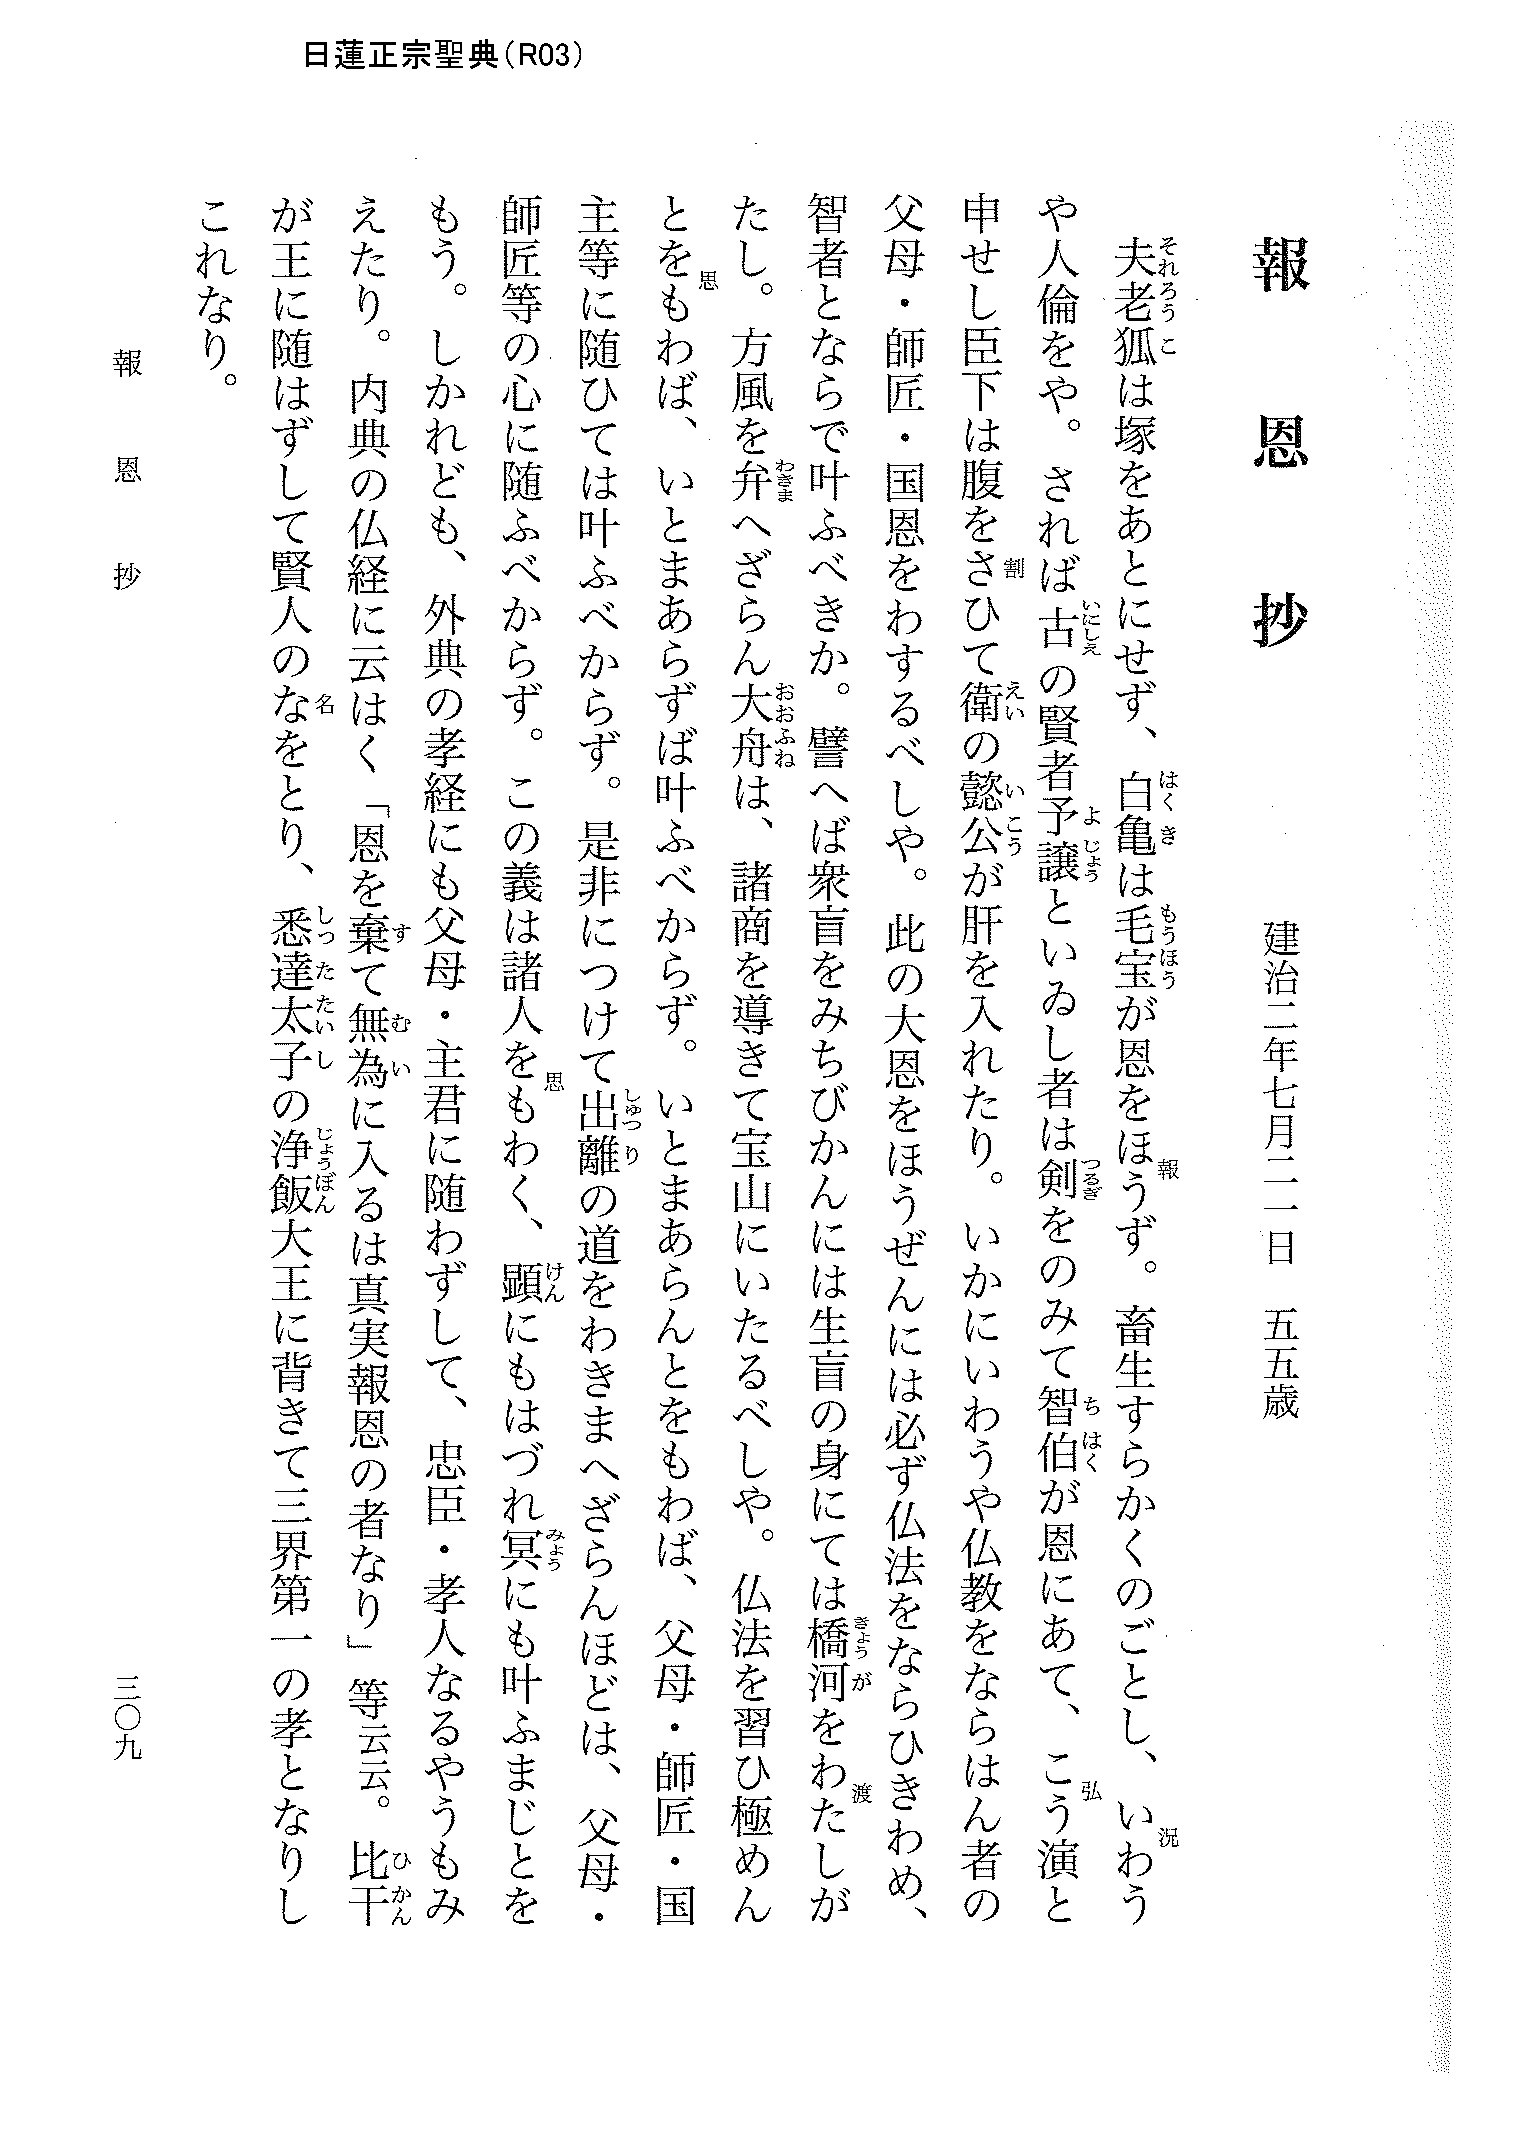 日蓮正宗聖典（R03）
報恩抄
建治二年七月二一日　五五歳
夫老狐は塚をあとにせず、白亀は毛宝が恩をほうず。畜生すらかくのごとし、いわう
や人倫をや。されば古の賢者予譲といゐし者は剣をのみて智伯が恩にあて、こう演と
申せし臣下は腹をさひて衛の懿公が肝を入れたり。いかにいわうや仏教をならはん者の
父母・師匠・国恩をわするべしや。此の大恩をほうぜんには必ず仏法をならひきわめ、
智者とならで叶ふべきか。譬へば衆盲をみちびかんには生盲の身にては橋河をわたしが
たし。方風を弁へざらん大舟は、諸商を導きて宝山にいたるべしや。仏法を習ひ極めん
とをもわば、いとまあらずば叶ふべからず。いとまあらんとをもわば、父母・師匠・国
主等に随ひては叶ふべからず。是非につけて出離の道をわきまへざらんほどは、父母・
師匠等の心に随ふべからず。この義は諸人をもわく、顕にもはづれ冥にも叶ふまじとを
もう。しかれども、外典の孝経にも父母・主君に随わずして、忠臣・孝人なるやうもみ
えたり。内典の仏経に云はく「恩を棄て無為に入るは真実報恩の者なり」等云云。比干
が王に随はずして賢人のなをとり、悉達太子の浄飯大王に背きて三界第一の孝となりし
これなり。
報恩抄
三〇九